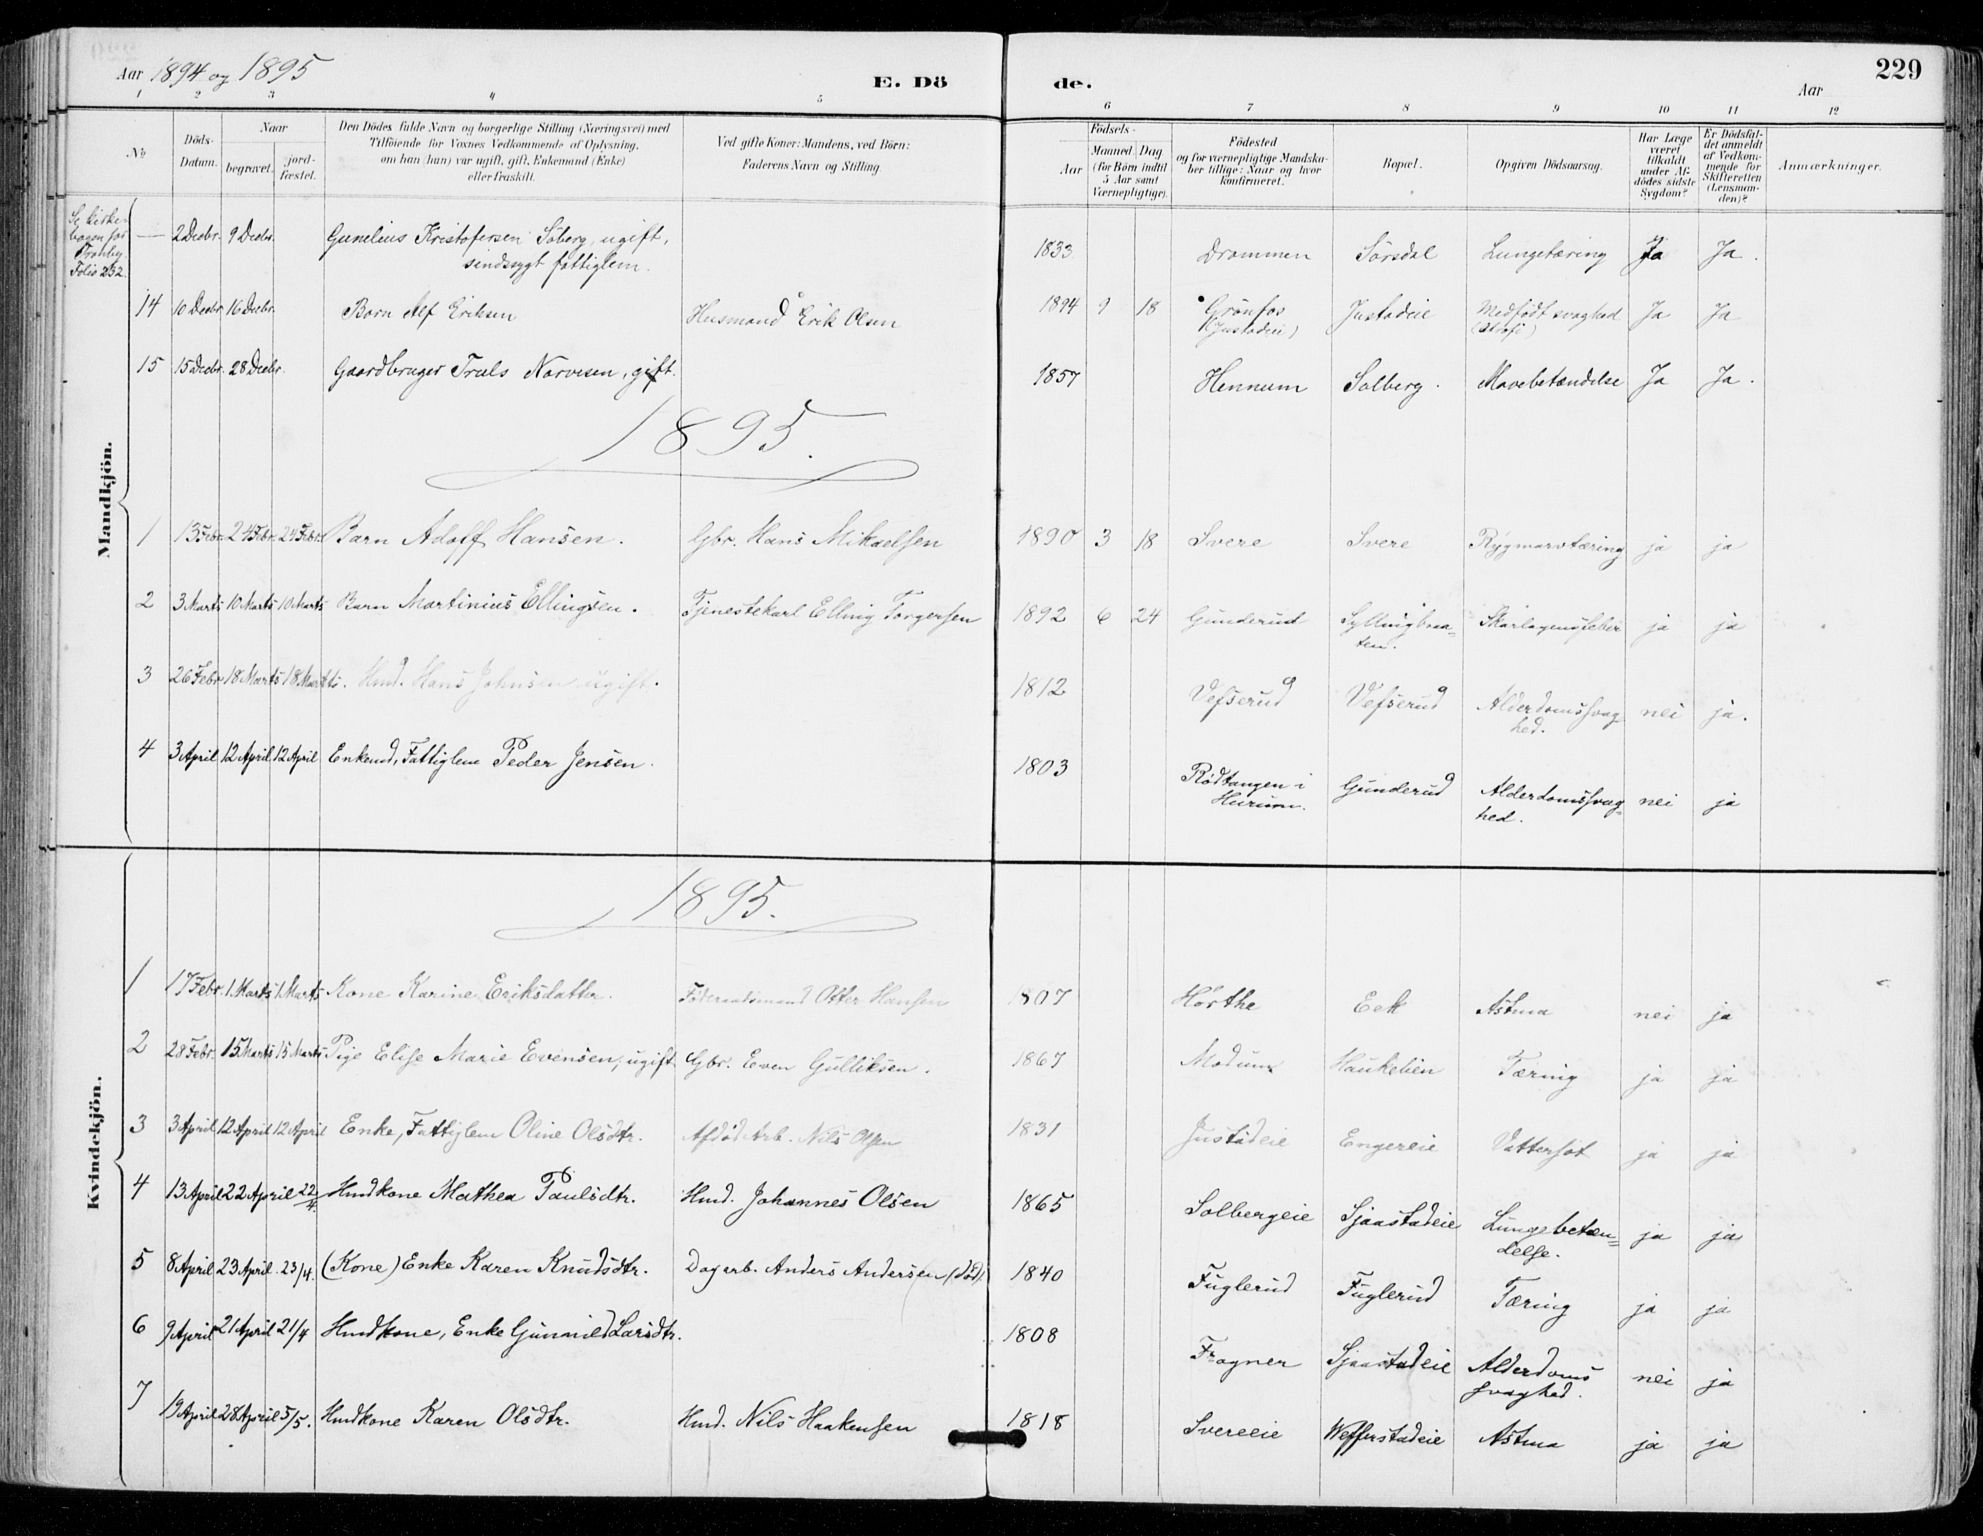 Aar 1894 og 1895
E. Dö
de.
Aar
229
1 2 3 4 5 6 7 8 9 10 11 12
No
Döds-
Datum.
Naar
begravet.
jord-
fæstet.
Den Dödes fulde Navn og borgerlige Stilling (Næringsvei) med
Tilföiende for Voxnes Vedkommende af Oplysning,
om han (hun) var ugift, gift, Enkemand (Enke)
eller fraskilt.
Ved gifte Koner: Mandens, ved Börn:
Faderens Navn og Stilling.
Födsels-
Aar
Maaned Dag
(for Börn indtil
5 Aar samt
Værnepligtige).
Födested
og for værnepligtige Mandska-
ber tillige: Naar og hvor
konfirmeret.
Bopæl.
Opgiven Dödsaarsag.
Har Læge
været
tilkaldt
under Af-
dödes sidste
Sygdom?
Er Dödsfal-
det anmeldt
af Vedkom-
mende for
Skifteretten
(Lensman-
den)?
Anmærkninger.
Mandkjön.
Se Kirke-
bogen for
Folio 232.
— 2 Decbr. 9 Decbr. Gunelius Kristofersen Söberg, ugift, 1833 Drammen Sörsdal Lungetæring Ja Ja.
sindssygt fattiglem.
14 10 Decbr. 16 Decbr. Barn Alf Eriksen Husmand Erik Olsen 1894 9 18 Grönfos Justadeie Medfödt svaghed Ja Ja
(Justadeie)
15 15 Decbr. 28 Decbr. Gaardbruger Truls Narvesen, gift. 1857 Hennum Solberg. Mavebetændelse Ja Ja.
1895.
1 13 Febr. 24 Febr. 24 Febr. Barn Adolf Hansen. Gbr. Hans Mikaelsen 1890 3 18 Svere Svere Rygmarvtæring ja ja
2 3 Marts 10 Marts 10 Marts Barn Martinius Ellingsen. Tjenestekarl Elling Torgersen 1892 6 24 Gunderud Syllingbraa- Skarlagensfeber ja ja
ten.
3 26 Febr 18 Marts 18 Marts. Hmd. Hans Johnsen ugift. 1812 Vefserud Vefserud Alderdomssvag nei ja.
hed.
4 3 April 12 April 12 April Enkemd, Fattiglem Peder Jensen. 1803 Rödtangen i Gunderud Alderdomssvag- nei ja
Hurum. hed.
Kvindekjön.
1895.
1 17 Febr. 1. Marts 1. Marts Kone Karine Eriksdatter. Föderaadsmand Otter Hansen 1807 Hörthe Eek Astma nei ja
2 28 Febr. 15 Marts 15 Marts Pige Elise Marie Evensen, ugift Gbr. Even Gulliksen. 1867 Modum Haukelien Tæring ja ja
3 3 April 12 April 12 April Enke, Fattiglem Oline Olsdtr. Afdöd Arb. Nils Olsen 1831 Justadeie Engereie Vattersot ja ja
4 13 April 22 April 22/4. Hmdkone Mathea Paulsdtr. Hmd. Johannes Olsen 1865 Solbergeie Sjaastadeie Lungebetæn- ja ja
delse.
5 8 April 23 April. 23/4. (Kone) Enke Karen Knudsdtr. Dagarb. Anders Andersen (död). 1840 Fuglerud Fuglerud Tæring ja ja
6 9 April 21 April 21/4 Hmdkone, Enke Gunnild Larsdtr. 1808 Frogner Sjaastadeie Alderdoms nei ja
svaghed.
7 19 April 28 April 5/5. Hmdkone Karen Olsdtr. Hmd. Nils Haakensen 1818 Svereeie Wefferstadeie Astma ja ja